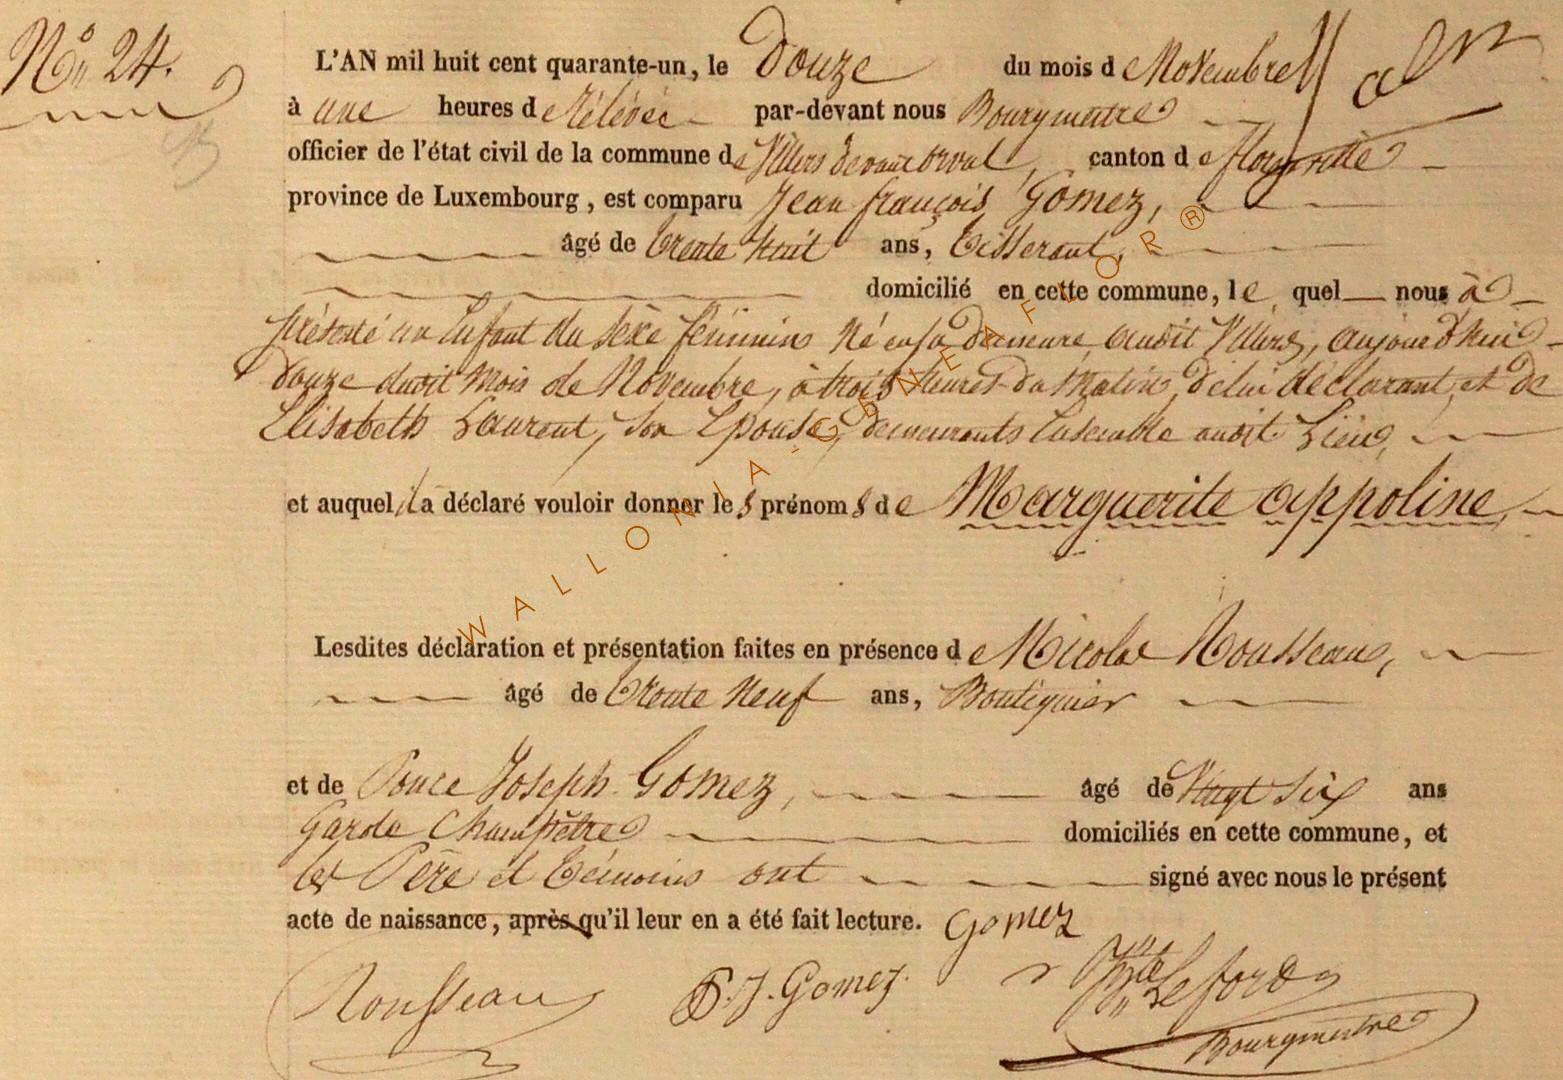 N° 24.
L'AN mil huit cent quarante-un, le Douze du mois de Novembre
à une heures de rélévée par-devant nous Bourgmestre
officier de l'état civil de la commune de Villers devant orval, canton de florenville
province de Luxembourg, est comparu Jean françois Gomez,
âgé de trente huit ans, tisserant,
domicilié en cette commune, le quel nous à
présenté un Enfant du sèxe féminin né en sa demeure audit Villers, aujourd'hui
douze dudit mois de Novembre, à trois heures du matin, de lui déclarant, et de
Elisabeth Laurent, son Epouse, demeurants Ensemble audit Lieu,
et auquel il a déclaré vouloir donner les prénoms de Marguerite appoline,
Lesdites déclaration et présentation faites en présence de Nicolas Rousseau,
âgé de trente neuf ans, Boutiquier
et de Ponce Joseph Gomez, âgé de Vingt six ans
Garde Champêtre domiciliés en cette commune, et
les Père et témoins ont signé avec nous le présent
acte de naissance, après qu'il leur en a été fait lecture. Gomez
Rousseau P. J. Gomez. Leford
Bourgmestre
WALLONIA-GENEAFLOR®